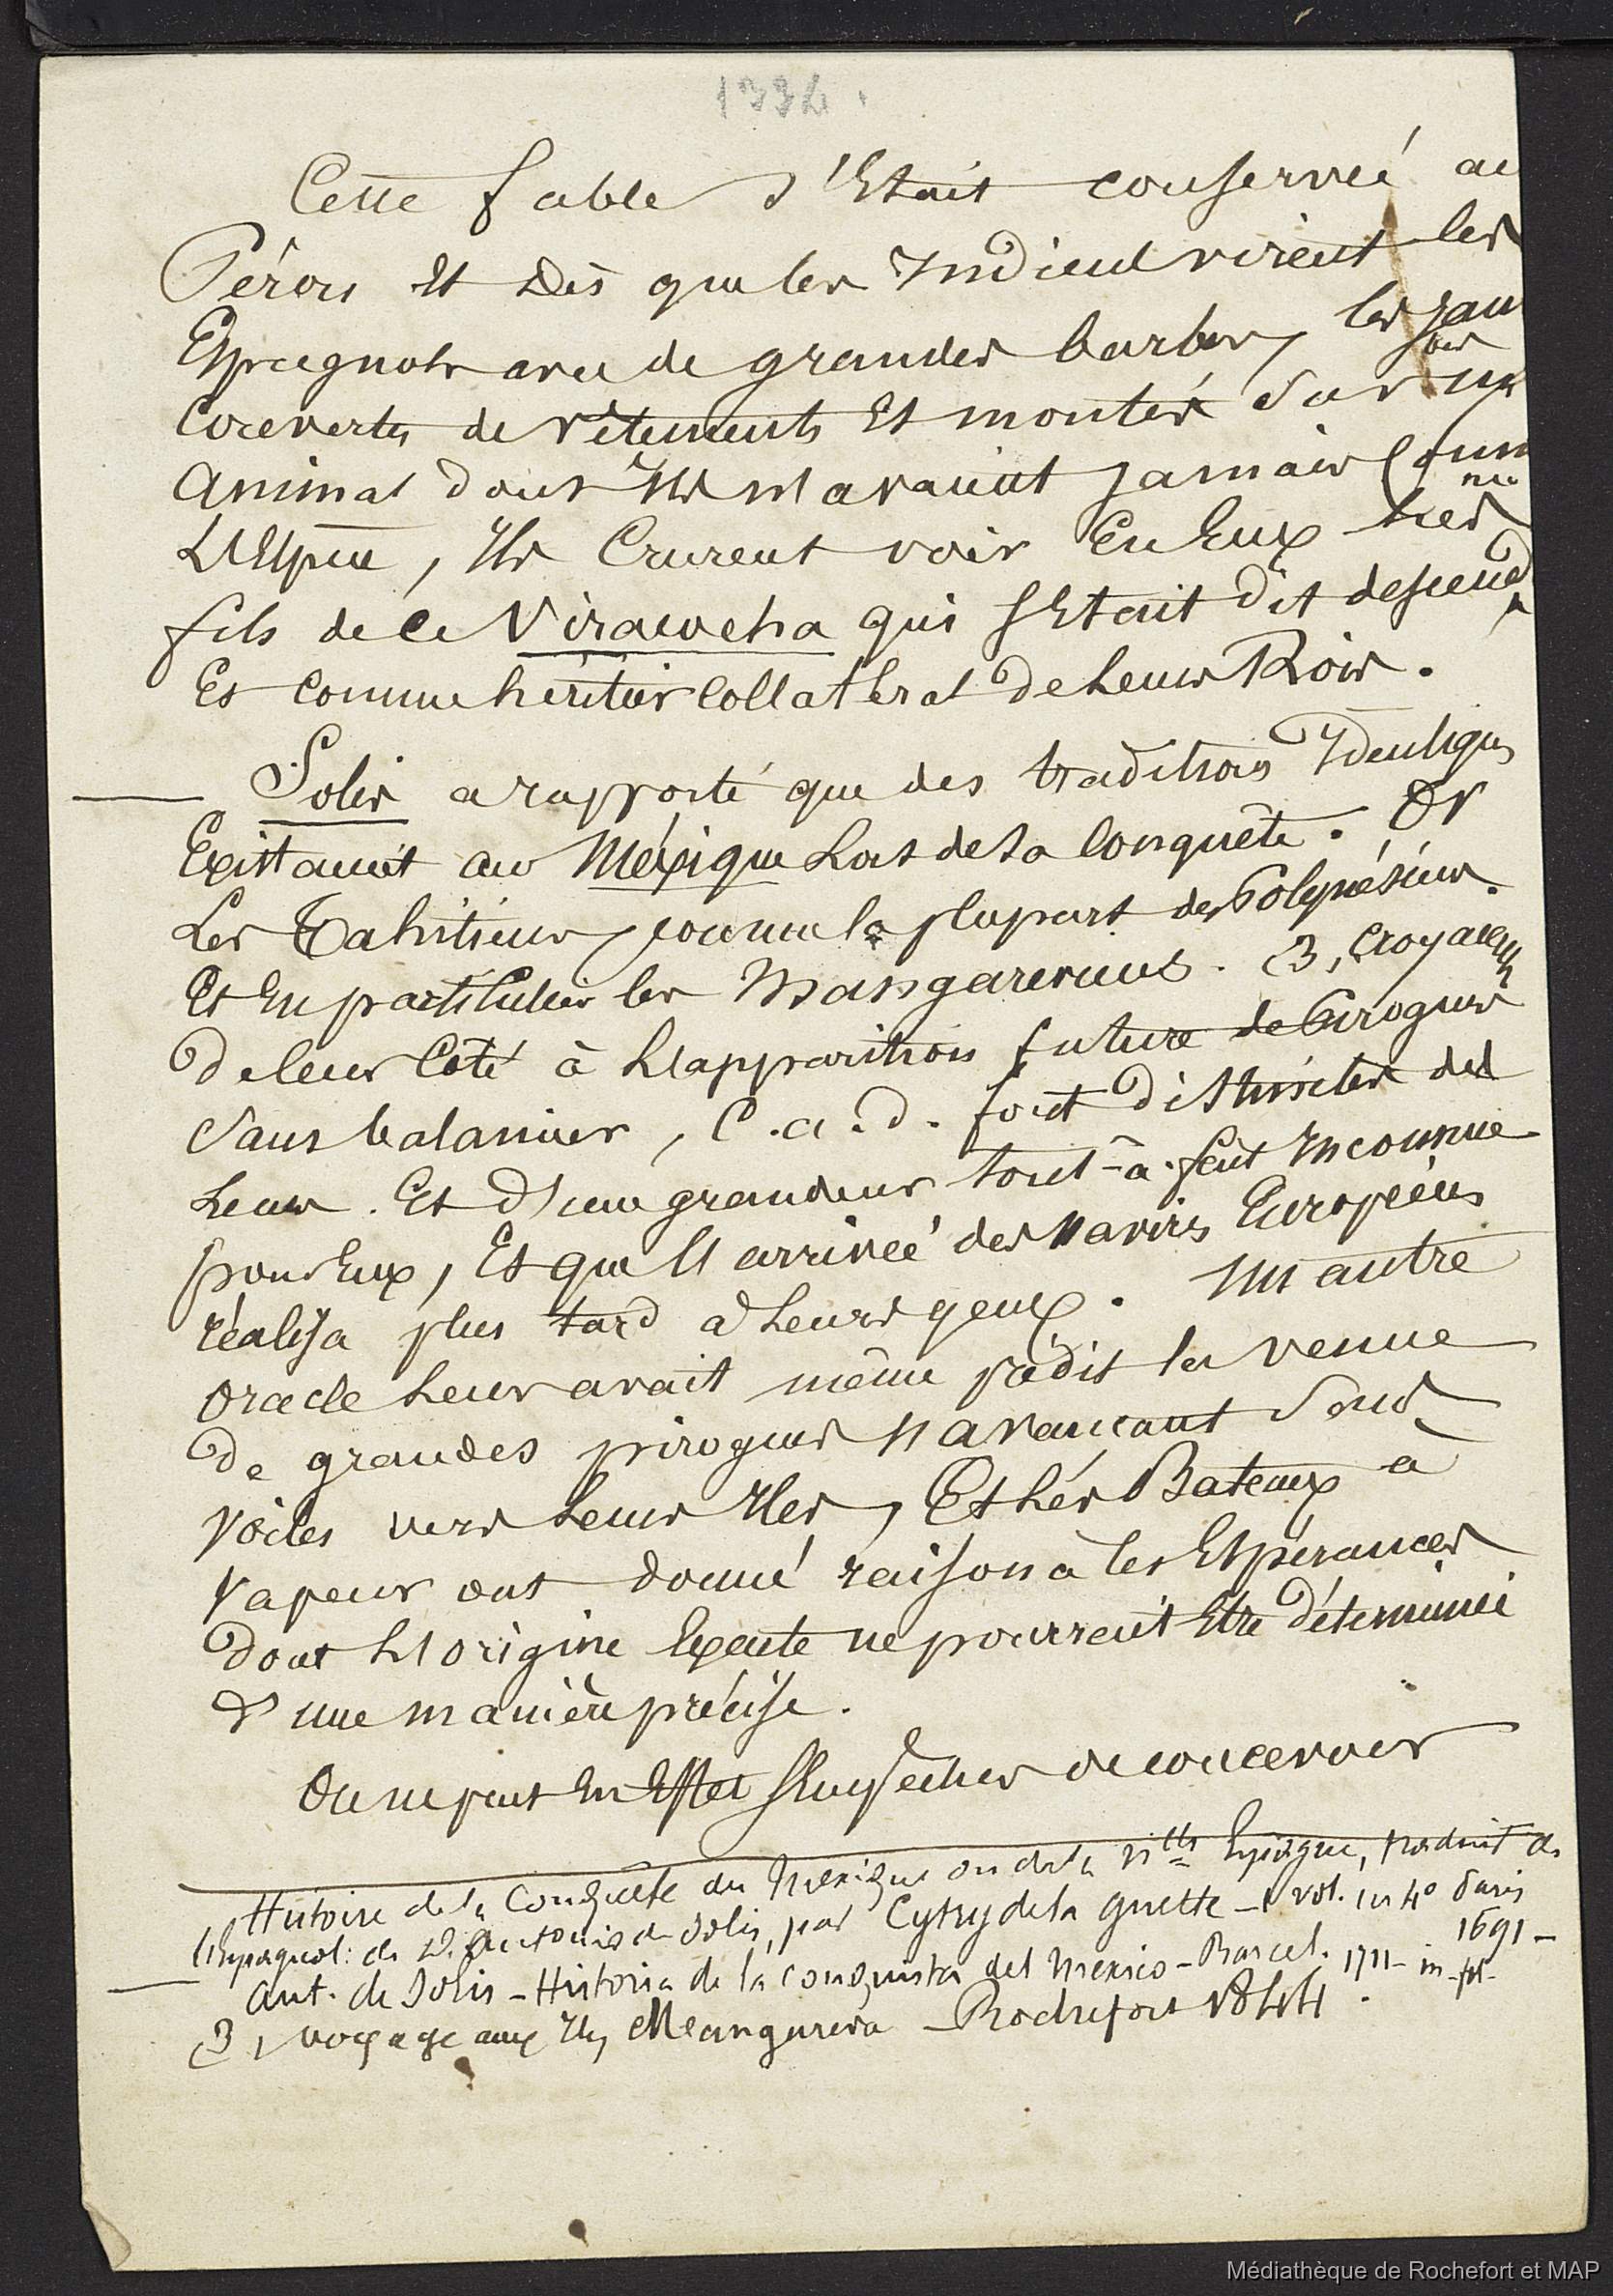 1334.
Cette fable s'Etait conservée au
Pérou Et Dès que les Indiens virent les
Espagnols avec de grandes barbes, les jam
bes
Couvertes de vêtements Et montés sur un
Animal dont Ils n'avaient jamais Conn
nu
L'Espèce, Ils Crurent voir En Eux les
fils de Ce Viracocha qui s'Etait dit descendu
Et comme héritier Collatéral De Leurs Rois.
Solis a rapporté que des traditions Identiques
Existaient au Méxique Lors de la Conquête. Or
Les Tahitiens, comme la plupart des Polynésiens.
Et En particulier les Mangareviens. (3, Croyaient
De leur Côté à L'apparition future de Pirogues
Sans balancier, C.a.d. fort Distinctes des
Leurs. Et D'une grandeur tout-à-fait Inconnue
pour Eux, Et que l'arrivée des Navires Européens
réalisa plus tard à Leurs yeux. Un autre
Oracle Leur avait même prédit la venue
De grandes pirogues s'avançant sans
Voiles vers Leurs Iles, Et Les Bateaux à
Vapeur ont donné raison à les Espérances
Dont L'origine Exacte ne pourrait Etre Déterminée
D'une manière précise.
On ne peut En Effet s'Empêcher de concevoir
Histoire de la Conquête du Mexique ou de la Nlle Espagne, traduit de
l'Espagnol: de D. Antonio de Solis, par Cytry de la Guette - 1 vol. in 4° Paris
1691 -
Ant. de Solis - Historia de la Conquista del Mexico - Barcel. 1711 - in-fol-
(3, Voyage aux Iles Mangareva - Rochefort 1844.
Médiathèque de Rochefort et MAP